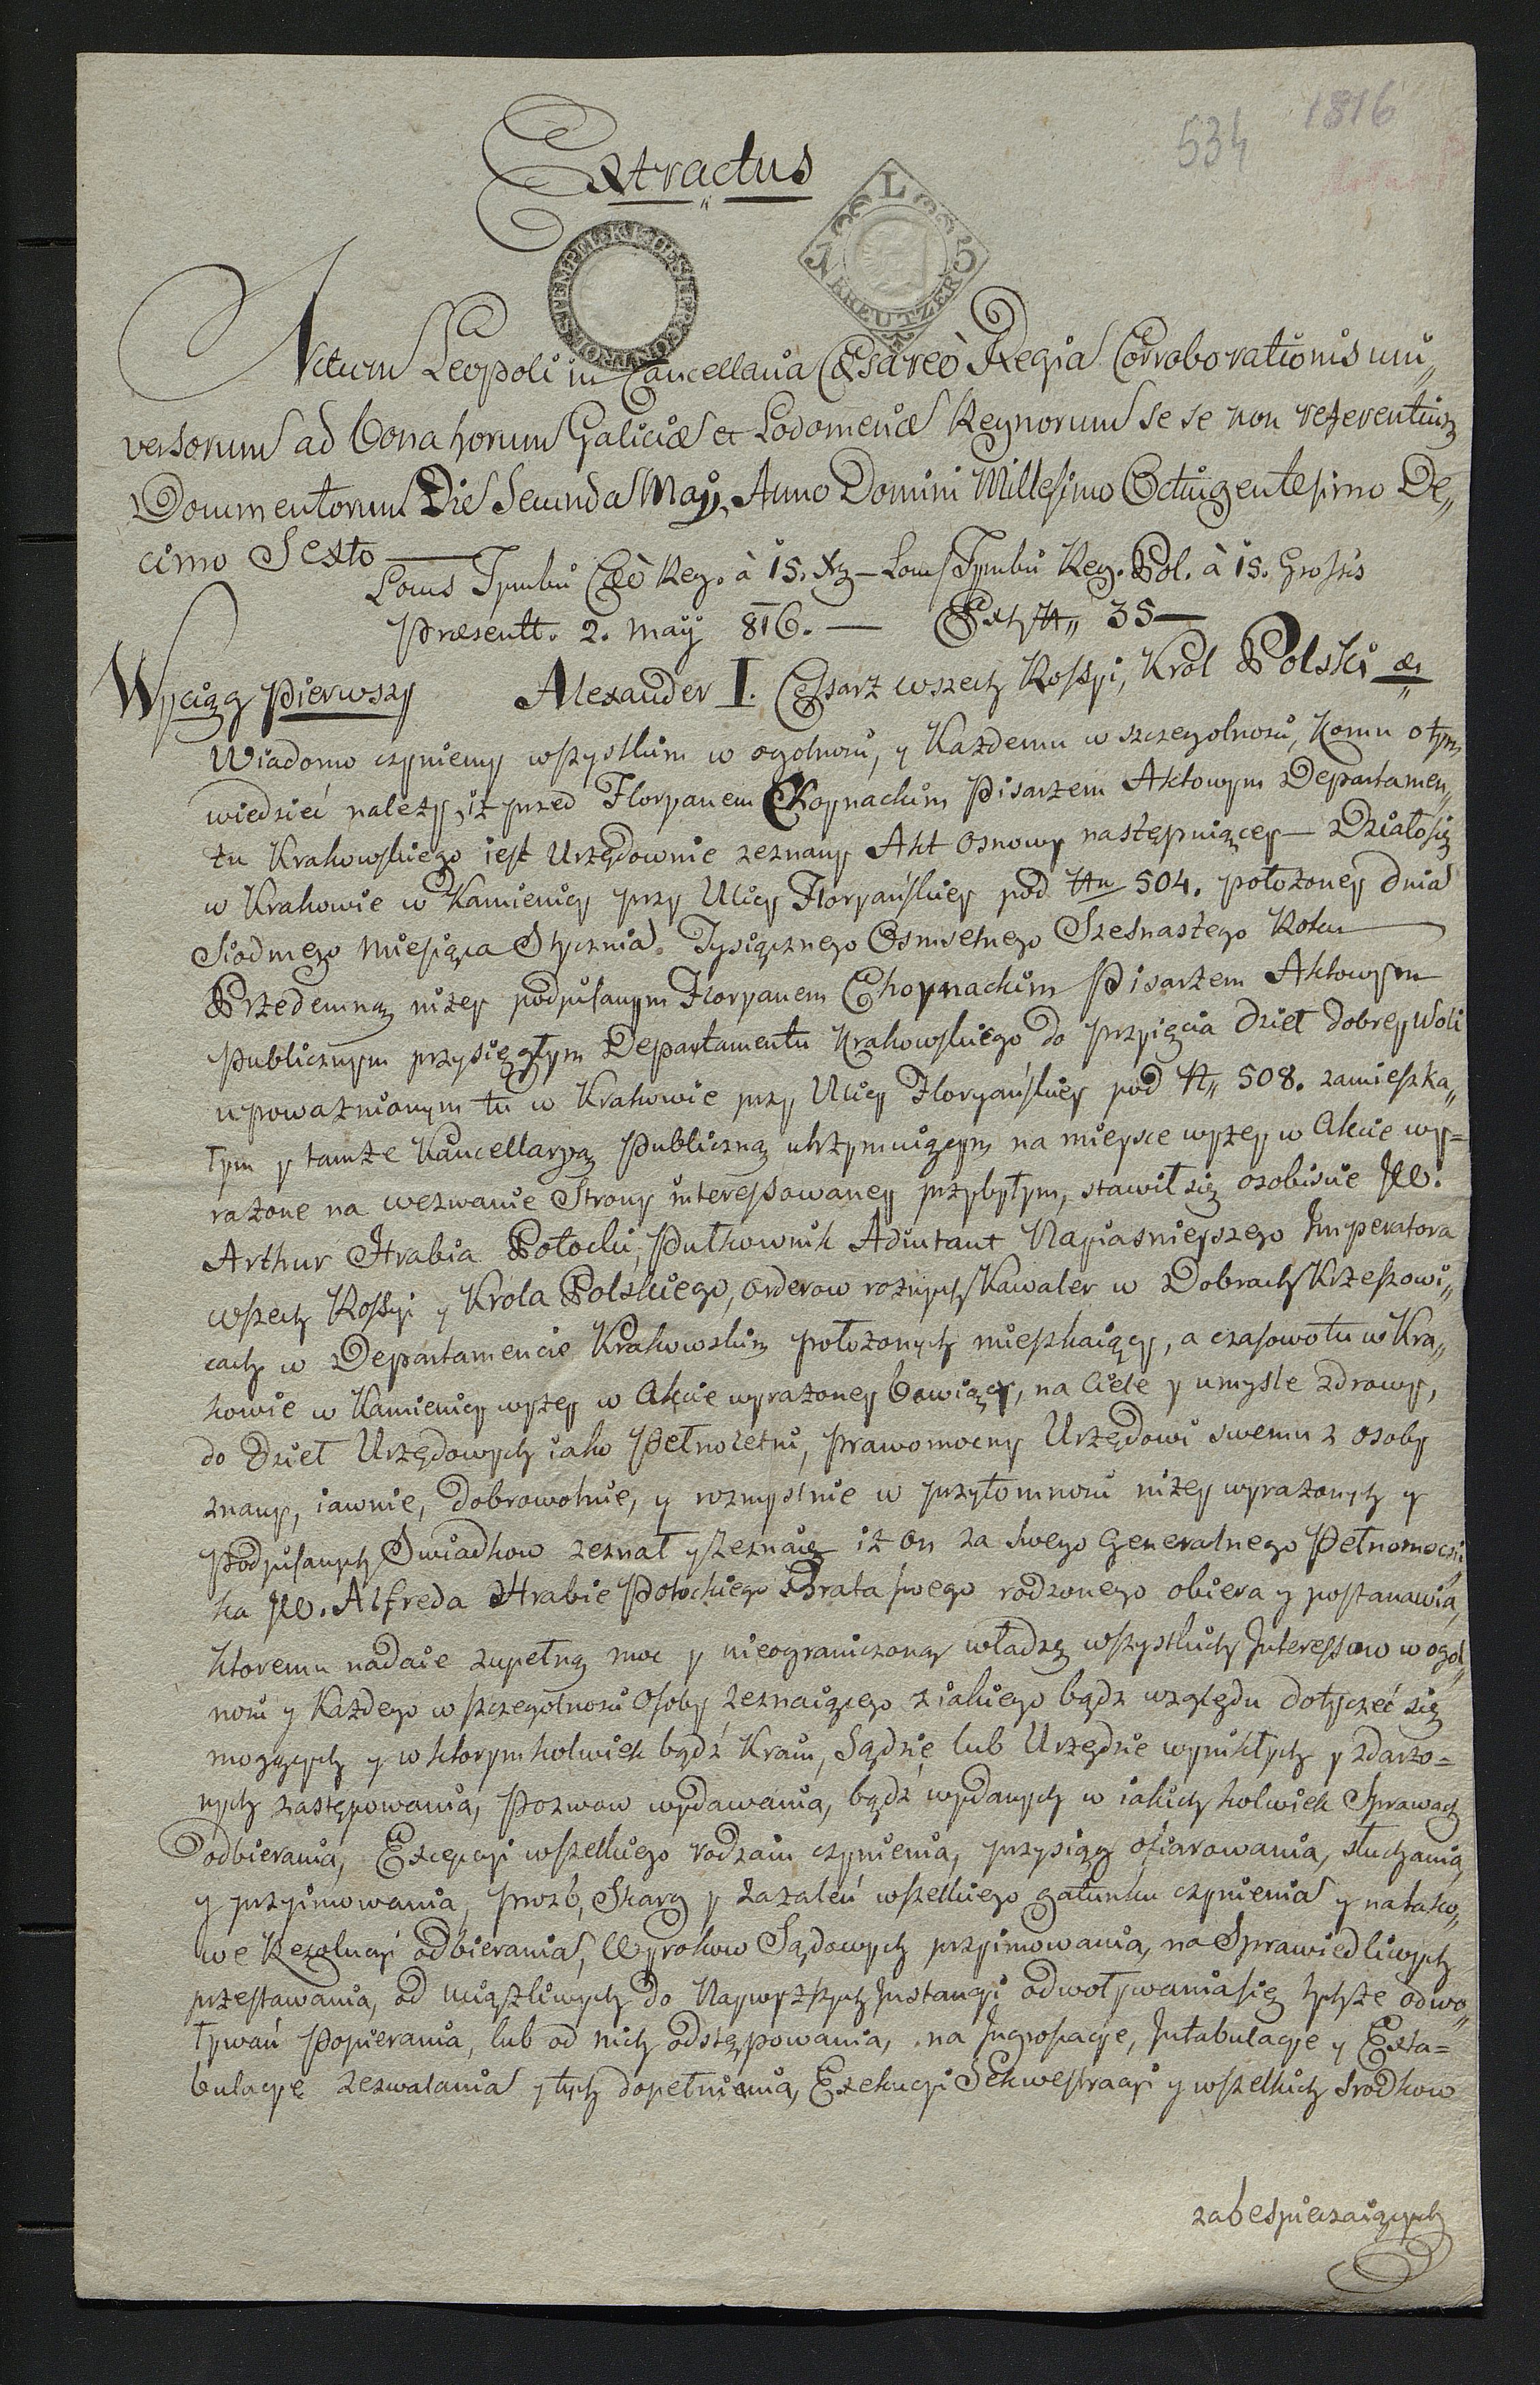 1816
534
Extractus
STEMPEL K: K: OEST: CONTROL
L 5
KREUTZER
Actum Leopoli in Cancellaria Cæsareò Regia Corroborationis uni„
versorum ad bona horum Galiciæ et Lodomeriæ Regnorum se se non referentium
Documentorum Die Secunda Maij Anno Domini Millesimo Octingentesimo De„
cimo Sexto —
Locus Tymbri Cæò Reg. à 15. Xz — Locus Tymbri Reg. Pol. à 15. Grossis
Præsentt. 2. maij 816. — Exh „ 35 —
Wyciąg Pierwszy Alexander I. Cesarz wszech Rossyi, Krol Polski &
Wiadomo czyniemy wszystkim w ogolnosci, y Każdemu w szczegolnosci, komu o tym
wiedzieć należy, iż przed Floryanem Choynackim Pisarzem Aktowym Departamen„
tu Krakowskiego iest Urzędownie zeznany Akt osnowy następuiącey — Działo się
w Krakowie w Kamienicy przy Ulicy Floryańskiey pod Nu 504. położoney dnia
Siodmego Miesiąca Stycznia Tysiącznego Osmsetnego Szesnastego Roku —
Przedemną niżey podpisanym Floryanem Choynackim Pisarzem Aktowym
Publicznym przysięgłym Departamentu Krakowskiego do przyięcia dzieł dobrey Woli
upoważnionym tu w Krakowie przy Ulicy Floryańskiey pod N„ 508. zamieszka„
łym y tamże Kancellaryą Publiczną utrzymuiącym na mieysce wyżey w Akcie wy=
rażone na wezwanie Strony interessowaney przybyłym, stawił się osobiscie JW.
Arthur Hrabia Potocki, Pułkownik Adiutant Nayiasnieyszego Imperatora
wszech Rossyi y Krola Polskiego, orderow roznych Kawaler w Dobrach Krzeszowi„
cach w Departamencie Krakowskim położonych mieszkaiący, a czasowo tu w Kra„
kowie w Kamienicy wyżey w Akcie wyrażoney bawiący, na Ciele y umysle zdrowy,
do Dzieł Urzędowych iako Pełnoletni, prawomocny Urzędowi swemu z osoby
znany, iawnie, dobrowolnie, y rozmyslnie w przytomnosci niżey wyrażonych y
Podpisanych Swiadkow zeznał y zeznaie iż on za swego Generalnego Pełnomocni
ka JW. Alfreda Hrabie Potockiego Brata swego rodzonego obiera y postanawia,
ktoremu nadaie zupełną moc y nieograniczoną władzę wszystkich Interessow w ogol„
nosci y Każdego w szczegolnosci Osoby zeznaiącego z iakiego bądz względu dotyczeć się
mogących y w ktorymkolwiek bądź Kraiu, Sądzie lub Urzędzie wynikłych y zdarzo=
nych zastępowania, Pozwow wydawania, bądź wydanych w iakichkolwiek Sprawach
odbierania, Excepcyi wszelkiego rodzaiu czynienia, przysiąg ofiarowania, słuchania,
y przyimowania, prozb, Skarg y Zażaleń wszelkiego gatunku czynienia y na tako„
we Rezolucyi odbierania, Wyrokow Sądowych przyimowania, na Sprawiedliwych
przestawania, od uciążliwych do Naywyższych Instancyi odwoływania się tychże odwo„
ływań Popierania, lub od nich odstępowania, na Ingrosacye, Intabulacye y Exta=
bulacye zezwalania y tych dopełnienia, Exekucyi Sekwestracyi y wszelkich srodkow
zabespieczaiących